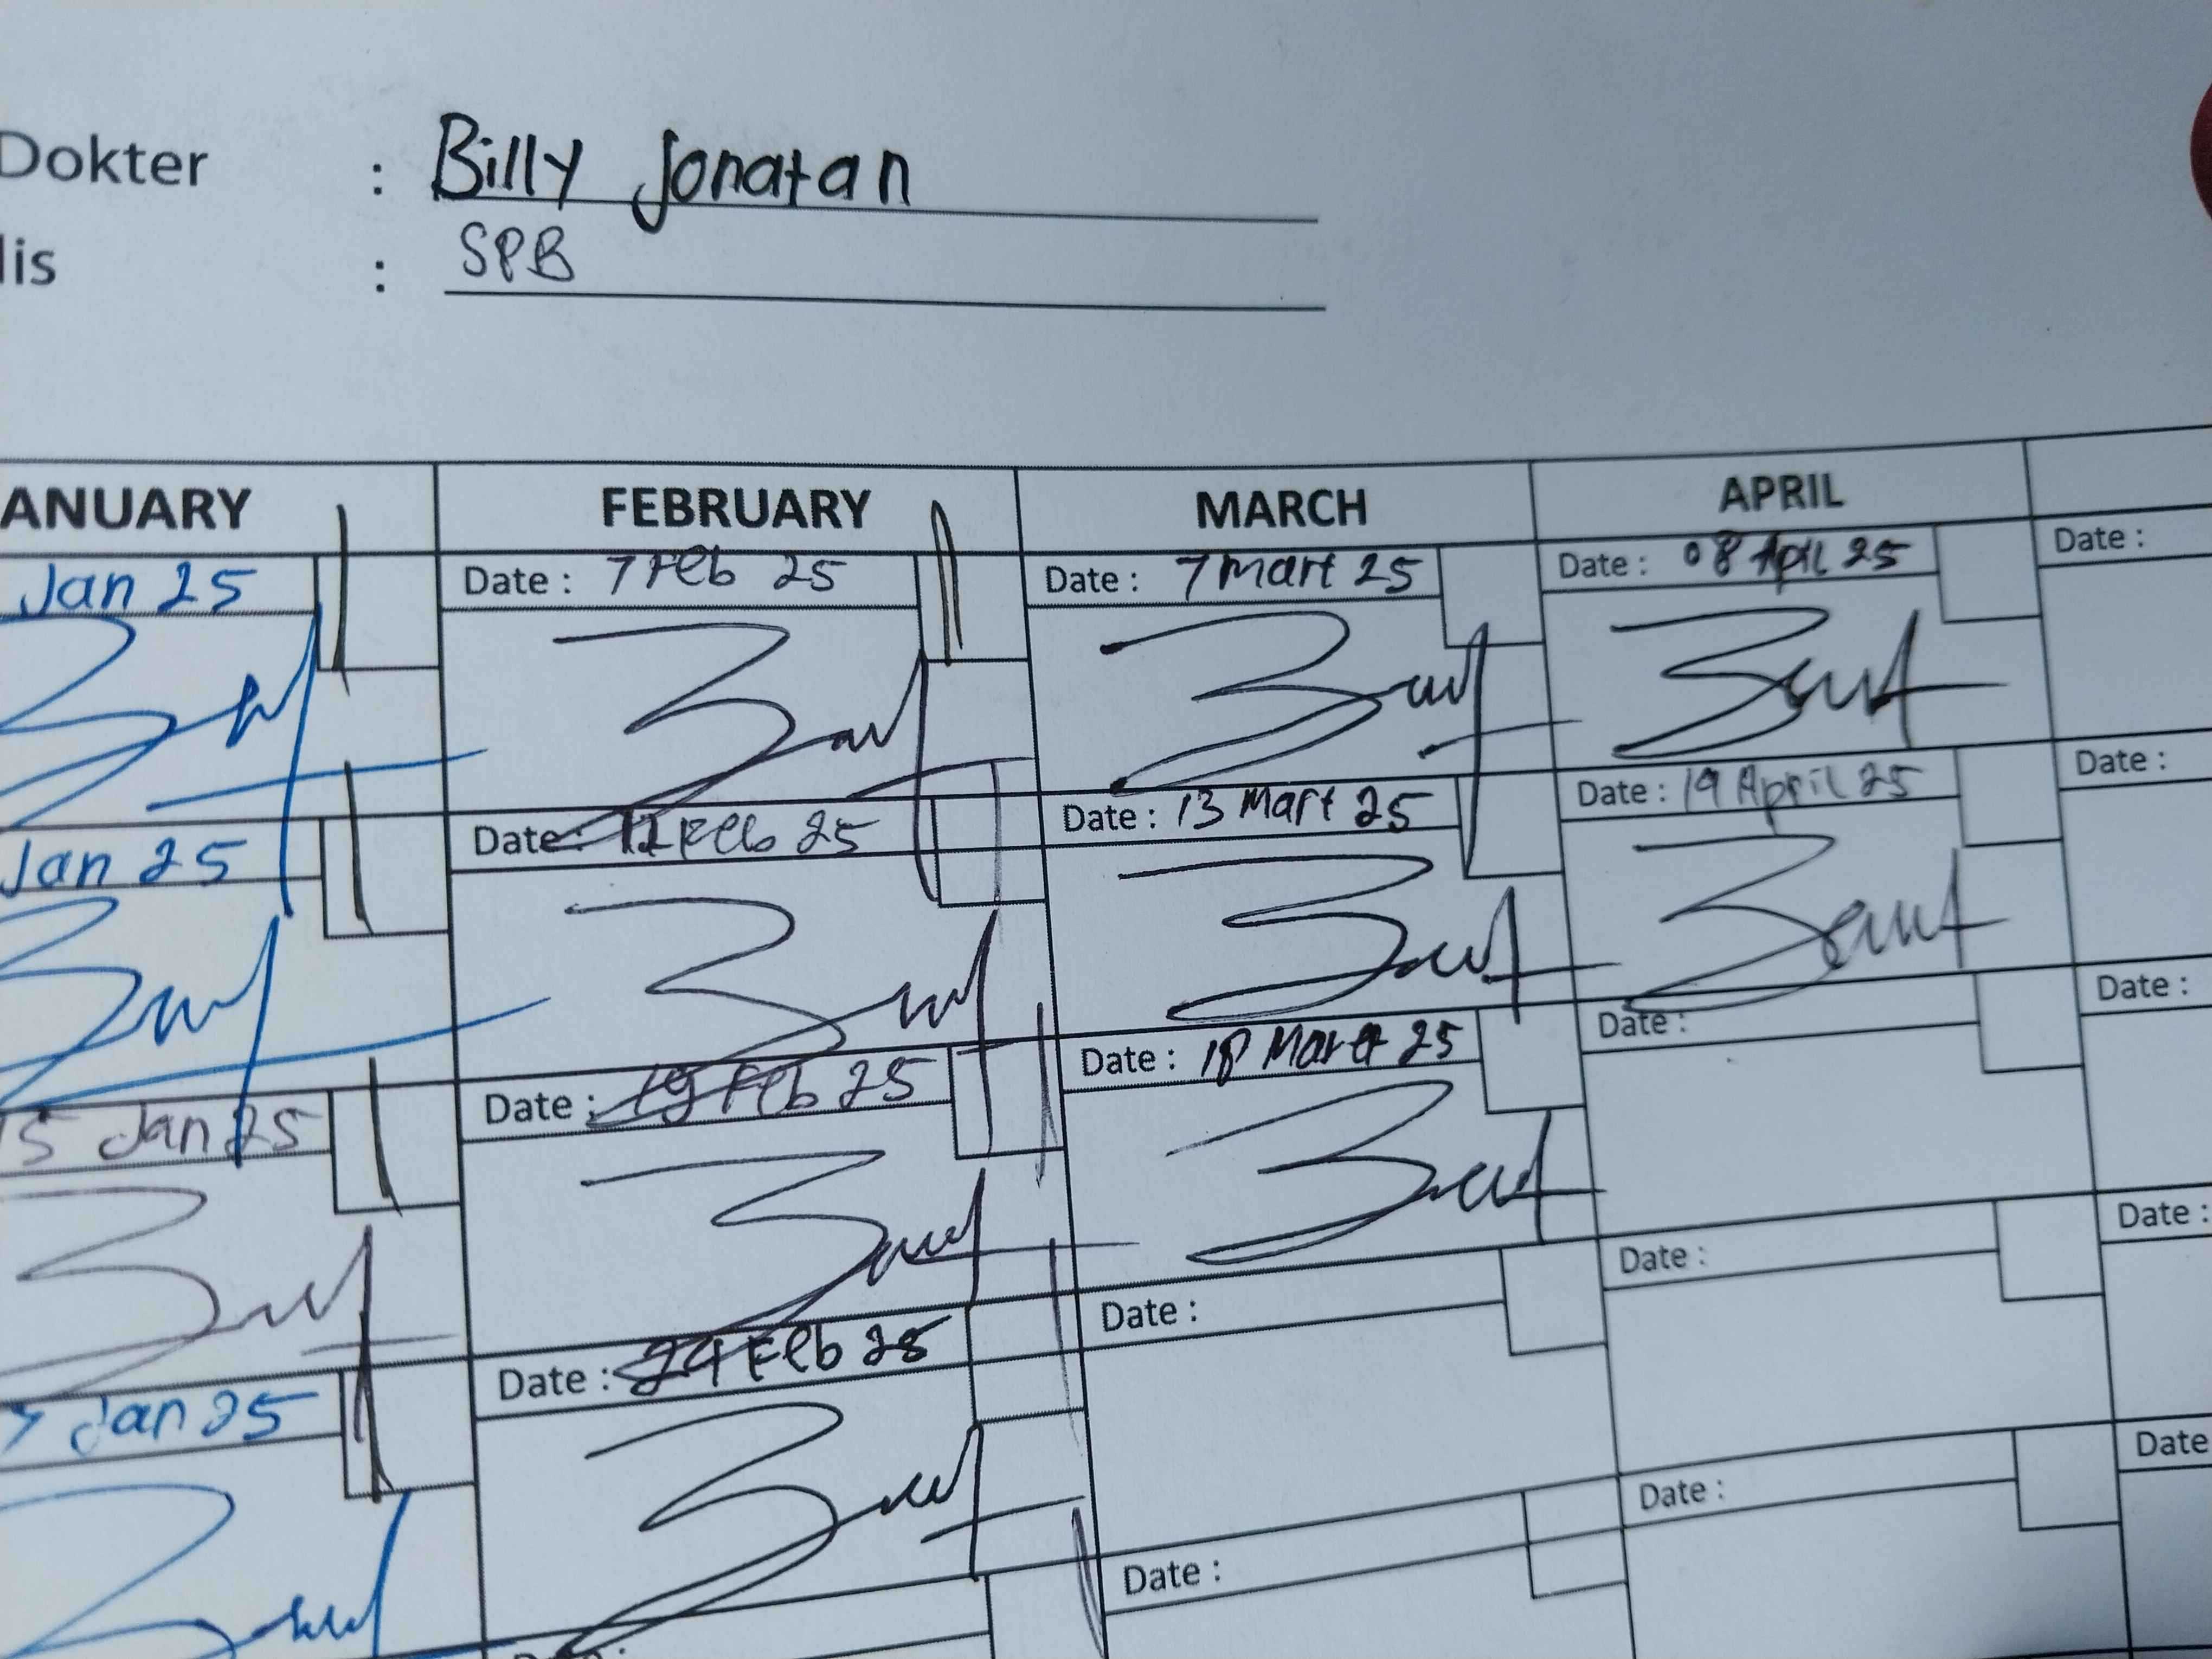 Dokter : Billy Jonatan
lis : SPB
ANUARY FEBRUARY MARCH APRIL
Jan 25 Date : 7 Feb 25 Date : 7 Mart 25 Date : 08 Apil 25 Date :
Jan 25 Date : 12 Feb 25 Date : 13 Mart 25 Date : 19 April 25 Date :
5 Jan 25 Date : 19 Feb 25 Date : 18 Maret 25 Date : Date :
7 Jan 25 Date : 24 Feb 25 Date : Date : Date :
Date : Date : Date